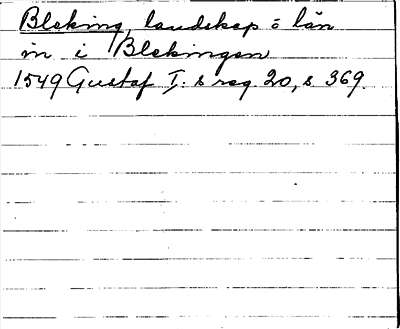 Bleking, landskap o län
in i Blekingen
1549 Gustaf I:s reg. 20, s. 369.